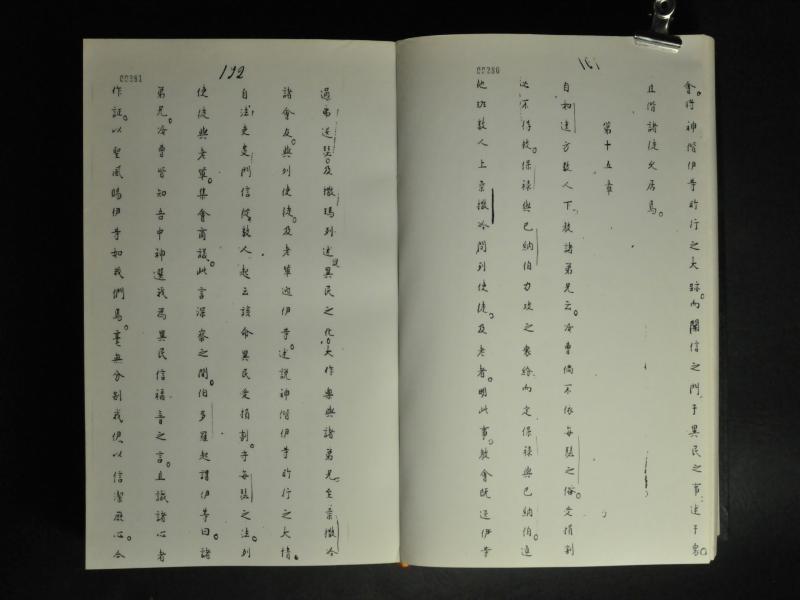 00280
會。將神偕伊等所行之大跡。而開信之門于異民之事述于眾。
且偕諸徒久居焉。
第十五章
自如達方數人下。教諸弟兄云。汝曹倘不依每瑟之俗。受損割
必不得救。保祿與巴納伯力攻之眾給而定保祿與巴納伯進
他班數人上柔撒冷問到使徒。及老者。明此事。教會既送伊等
00281
192
過弗尼及撒瑪列述說異民之化。大作樂與諸弟兄至柔撒冷
諸會友。與列使徒。及老輩迎伊等。述說神偕伊等所行之大情。
自法吏門信從數人。起云該命異民受損割。守每瑟之法。列
使徒與老輩。集會商議。此言深察之間。伯多羅起謂伊等曰諸
弟兄。汝曹皆知吾中神選我為異民信福音之言。且識諸心者
作証。以聖風賜伊等如我們焉。毫無分別我伊以信潔厥心。今